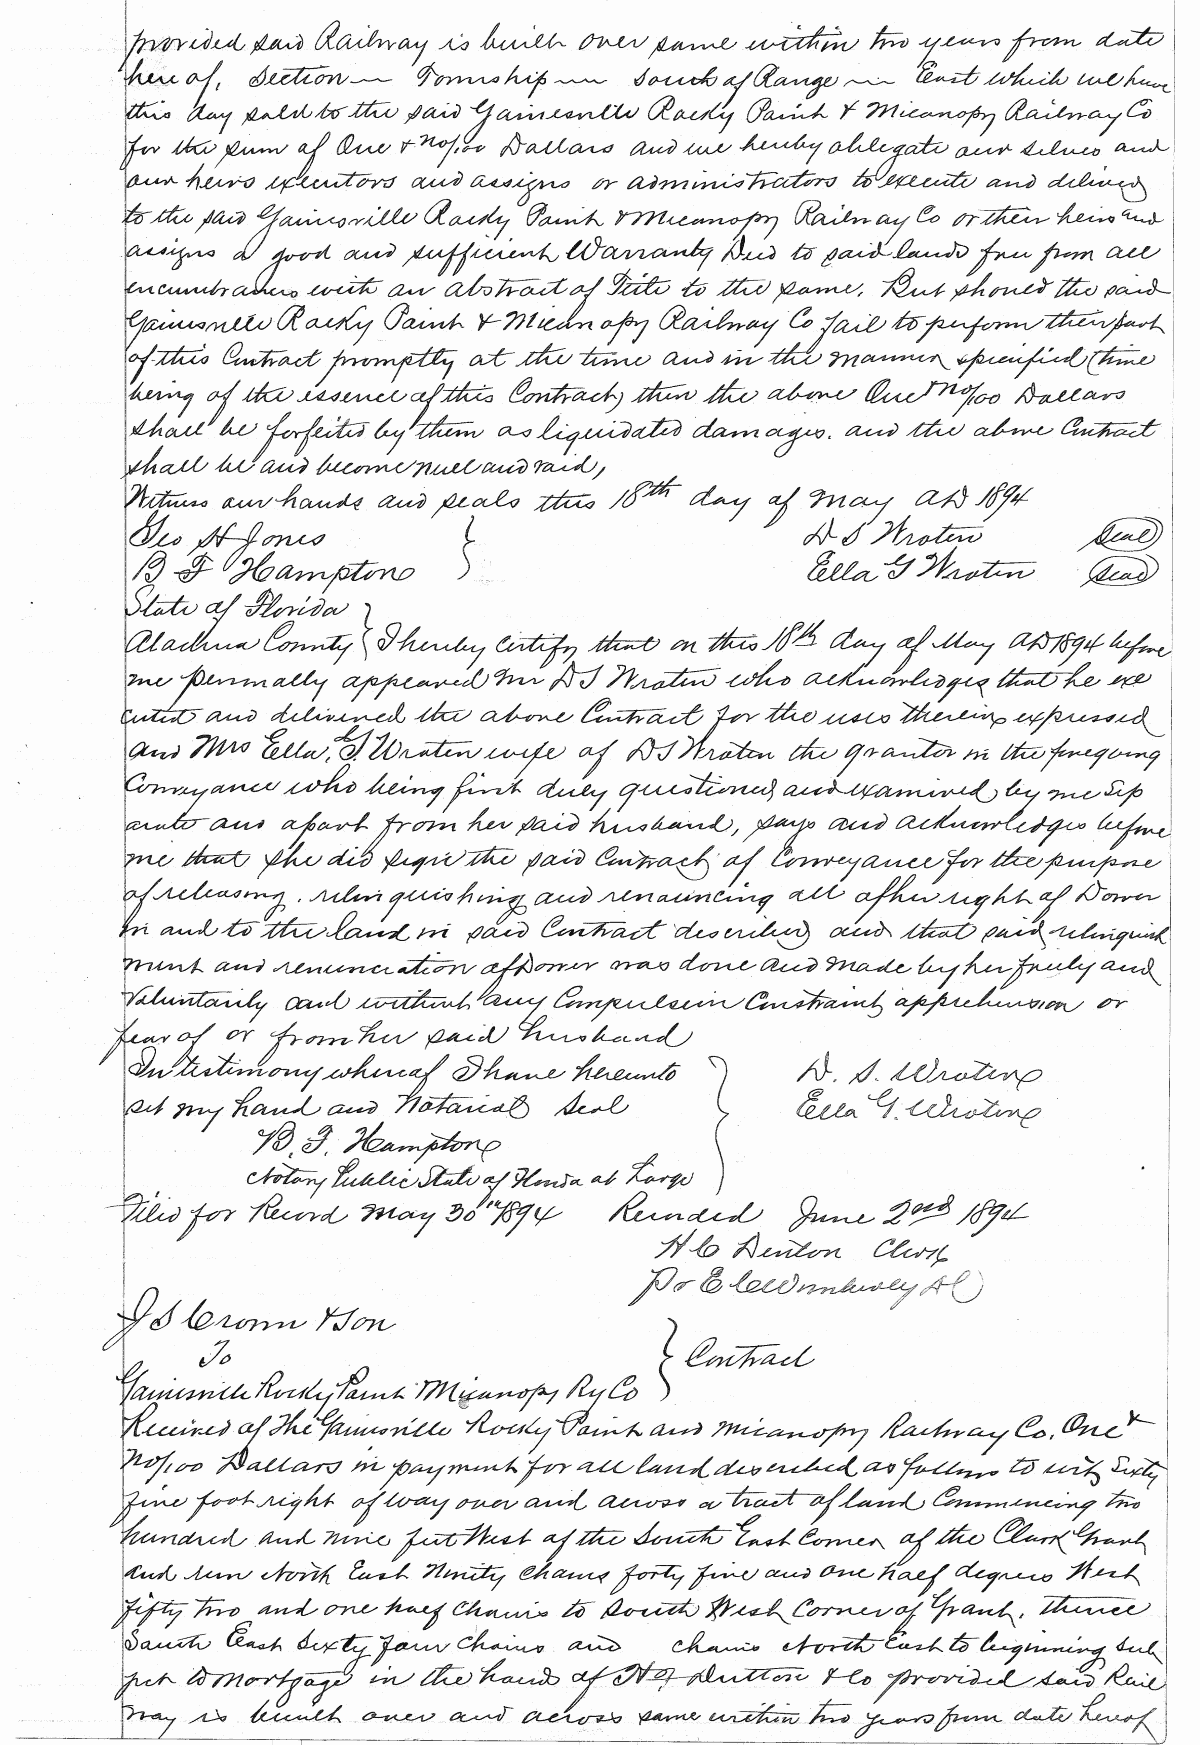 provided said Railway is built over same within two years from date
here of, Section — Township — South of Range — East which we have
this day sold to the said Gainesville Rocky Point & Micanopy Railway Co
for the sum of One & No/100 Dollars and we hereby oblegate our selves and
our heirs executors and assigns or administrators to execute and deliver
to the said Gainesville Rocky Point & Micanopy Railway Co or their heirs and
assigns a good and sufficient Warranty Deed to said lands free from all
encumbrances with an abstract of Title to the same. But should the said
Gainesville Rocky Point & Micanopy Railway Co fail to perform their part
of this Contract promptly at the time and in the manner specified (time
being of the essence of this Contract) then the above One & No/100 Dollars
shall be forfeited by them as liquidated damages. and the above Contract
shall be and become null and void,
Witness our hands and seals this 18th day of May AD 1894
Geo H Jones } D S Wroten Seal
B F Hampton Ella G Wroten Seal
State of Florida }
Alachua County { I hereby certify that on this 18th day of May AD 1894 before
me personally appeared Mr D S Wroten who acknowledges that he exe
cuted and delivered the above Contract for the uses therein expressed
and Mrs Ella G. Wroten wife of D S Wroten the grantor in the foregoing
Conveyance who being first duly questioned and examined by me Sep
arate and apart from her said husband, says and acknowledges before
me that she did sign the said Contract of Conveyance for the purpose
of releasing, relinquishing and renouncing all of her right of Dower
in and to the land in said Contract described and that said relinquish
ment and renunciation of Dower was done and made by her freely and
Voluntarily and without any Compulsion Constraint apprehension or
fear of or from her said husband
In testimony whereof I have hereunto } D. S. Wroten
set my hand and Notarial Seal Ella G. Wroten
B. F. Hampton
Notary Public State of Florida at Large
Filed for Record May 30th 1894 Recorded June 2nd 1894
H C Denton Clerk
Pr E C Wimberly D C
J S Crown & Son
To } Contract
Gainesville Rocky Point Micanopy Ry Co
Received of The Gainesville Rocky Point and Micanopy Railway Co. One &
No/100 Dollars in payment for all land described as follows to wit, Sixty
five foot right of way over and across a tract of land Commencing two
hundred and nine feet West of the South East Corner of the Clark Grant
and run North East Ninity chains forty five and one half degrees West
fifty two and one half Chains to South West Corner of Grant, thence
South East Sixty four Chains and chains North East to beginning sub
ject to mortgage in the hand of Dutton & Co provided said Rail
way is built over and across same within two years from date hereof